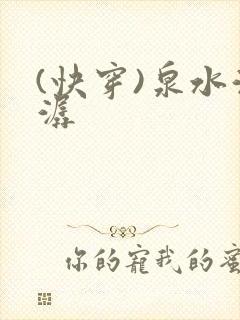 (快穿)泉水
潺
你的寵我的